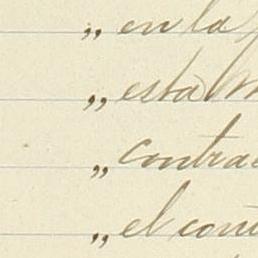 „ en la
„ esta
„ contra
„ el con